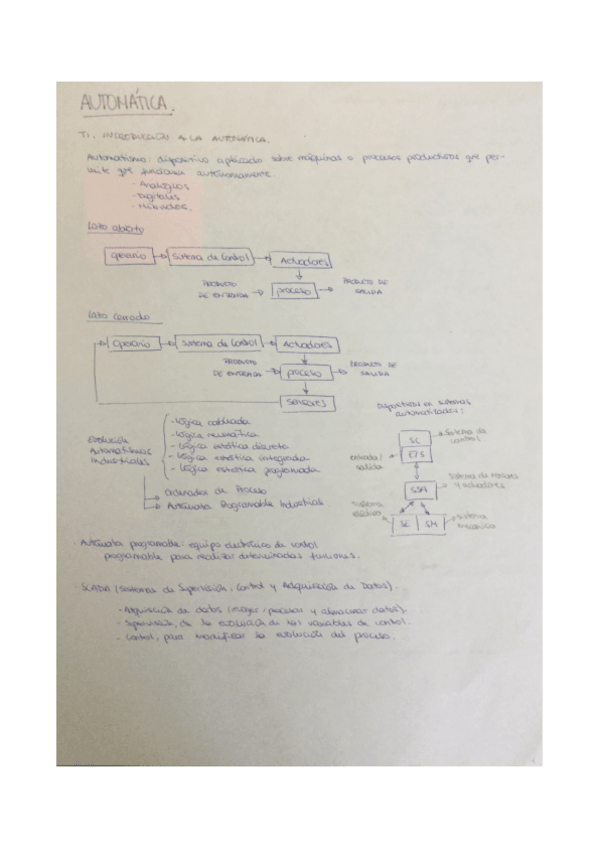 AUTOMÁTICA.
T1. INTRODUCCIÓN A LA AUTOMÁTICA.
Automatismo: dispositivo aplicado sobre máquinas o procesos productivos que per-
mite que funcionen autónomamente.
- Analógicos
- Digitales
- Híbridos.
Lazo abierto
operario
Sistema de Control
Actuadores
PRODUCTO DE ENTRADA
proceso
PRODUCTO DE SALIDA
Lazo cerrado
Operario
Sistema de Control
Actuadores
PRODUCTO DE ENTRADA
proceso
PRODUCTO DE SALIDA
sensores
Dispositivos en sistemas
automatizados:
Evolución
Automatismos
Industriales
- Lógica cableada
- Lógica neumática
- Lógica estática discreta
- Lógica estática integrada
- Lógica estática programada
Ordenador de Proceso
Autómata Programable Industrial
SC
Sistema de control
E/S
entrada/
salida
SSA
Sistema de sensores
y actuadores
SE
SM
Sistema
eléctrico
Sistema
mecánico
Autómata programable: equipo electrónico de control
programable para realizar determinadas funciones.
SCADA (Sistemas de Supervisión, Control y Adquisición de Datos).
- Adquisición de datos (recoger, procesar y almacenar datos).
- Supervisión, de la evolución de las variables de control.
- Control, para modificar la evolución del proceso.